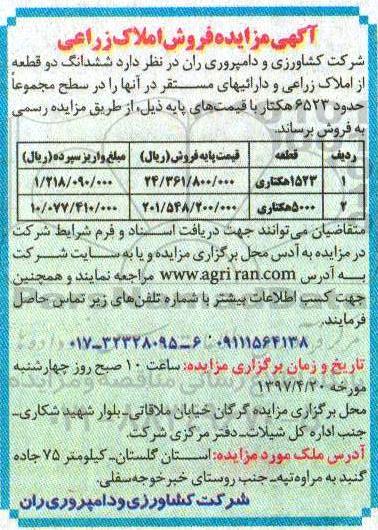 آگهی مزایده فروش املاک زراعی
شرکت کشاورزی و دامپروری ران در نظر دارد ششدانگ دو قطعه
از املاک زراعی و دارائیهای مستقر در آنها را در سطح مجموعاً
حدود ۶۵۲۳ هکتار با قیمت‌های پایه ذیل، از طریق مزایده رسمی
به فروش برساند.
ردیف قطعه قیمت پایه فروش (ریال) مبلغ واریز سپرده (ریال)
۱ ۱۵۲۳هکتاری ۲۴/۳۶۱/۸۰۰/۰۰۰ ۱/۲۱۸/۰۹۰/۰۰۰
۲ ۵۰۰۰هکتاری ۲۰۱/۵۴۸/۲۰۰/۰۰۰ ۱۰/۰۷۷/۴۱۰/۰۰۰
متقاضیان می‌توانند جهت دریافت اسناد و فرم شرایط شرکت
در مزایده به آدس محل برگزاری مزایده و یا به سایت شرکت
به آدرس www.agriran.com مراجعه نمایند و همچنین
جهت کسب اطلاعات بیشتر با شماره تلفن‌های زیر تماس حاصل
فرمایند.
۰۹۱۱۱۵۶۴۱۳۸ - ۶-۳۲۳۲۸۰۹۵-۰۱۷
تاریخ و زمان برگزاری مزایده: ساعت ۱۰ صبح روز چهارشنبه
مورخه ۱۳۹۷/۴/۲۰
محل برگزاری مزایده گرگان خیابان ملاقاتی-بلوار شهید شکاری-
جنب اداره کل شیلات-دفتر مرکزی شرکت.
آدرس ملک مورد مزایده: استان گلستان-کیلومتر ۷۵ جاده
گنبد به مراوه‌تپه-جنب روستای خیرخوجه‌سفلی.
شرکت کشاورزی و دامپروری ران